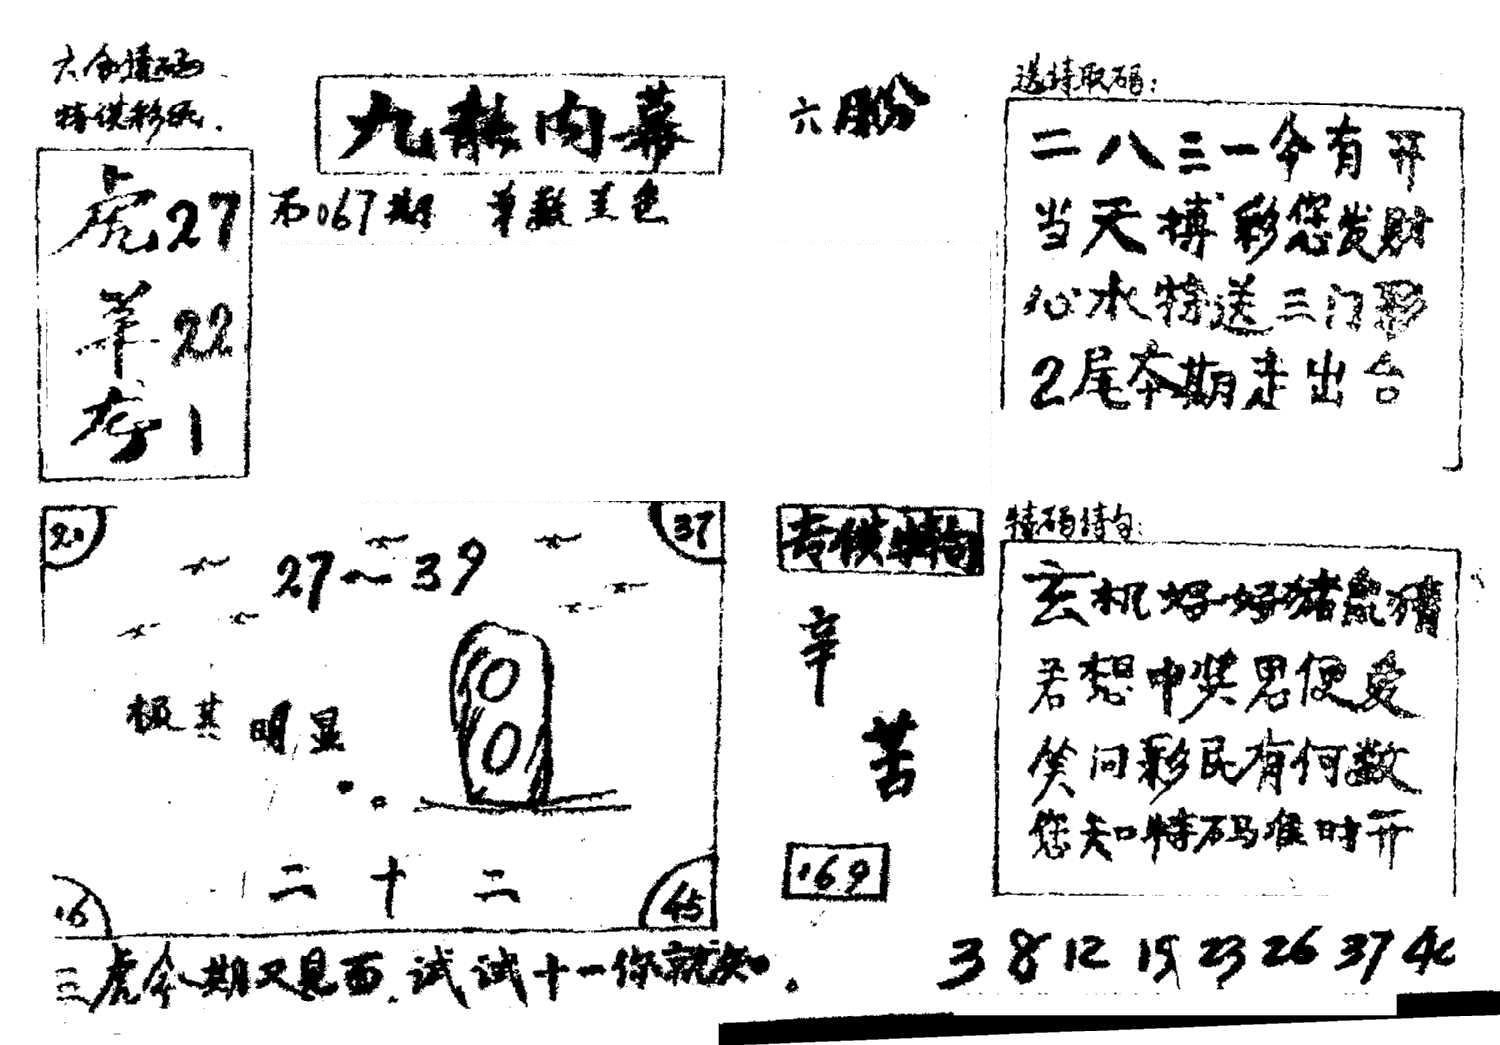 特供彩民.
虎27
羊22
1
九龙内幕
067期 单数
六月份
送特取码:
二八三一今有开
当天搏彩您发财
心水特送三门彩
2尾本期走出台
20
37
27~39
极其明显
16
45
二十二
三虎今期又见面.试试十一你就知.
辛
苦
169
特码诗句:
玄机好好猪鼠猜
若想中奖思便爱
笑问彩民有何数
您知特码准时开
3 8 12 19 23 26 37